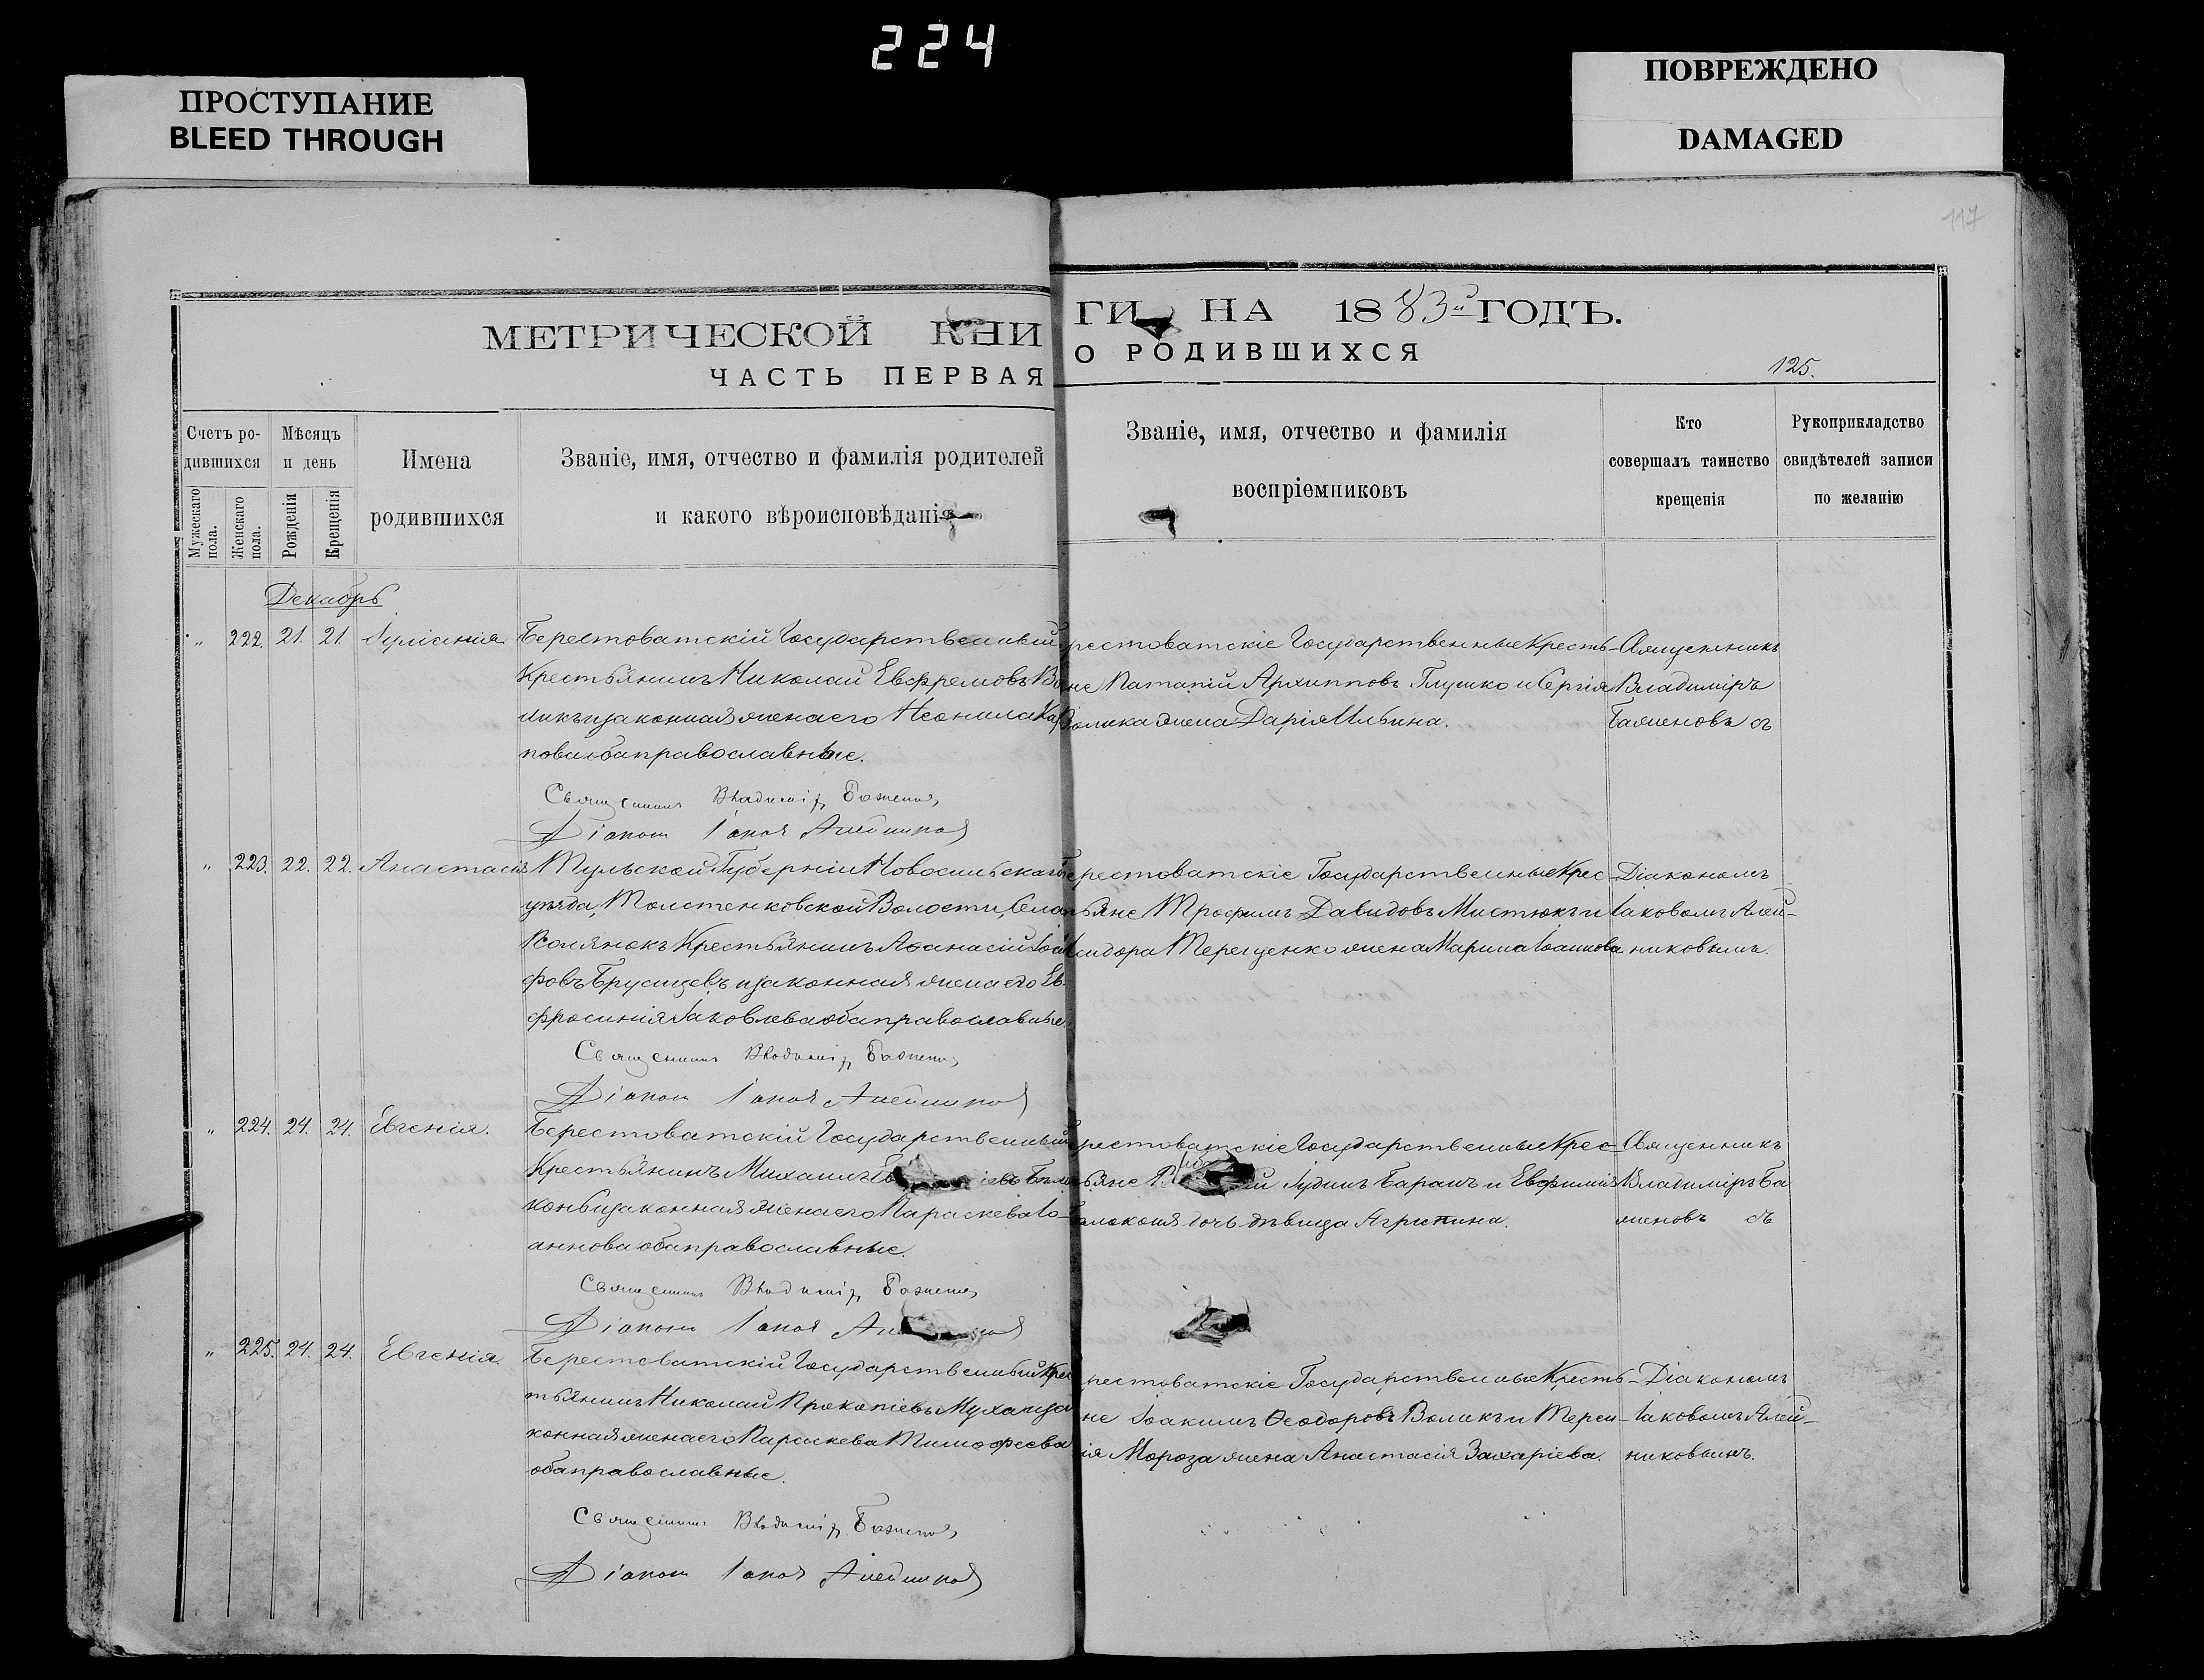 224
ПРОСТУПАНИЕ
BLEED THROUGH
ПОВРЕЖДЕНО
DAMAGED
117
МЕТРИЧЕСКОЙ КНИ
ЧАСТЬ ПЕРВАЯ
ГИ НА 1883й ГОДЪ.
О РОДИВШИХСЯ
125.
Счетъ ро-
дившихся
Мужескаго
пола.
Женскаго
пола.
Мѣсяцъ
и день
Рожденія
Крещенія
Имена
родившихся
Званіе, имя, отчество и фамилія родителей
и какого вѣроисповѣданія
Званіе, имя, отчество и фамилія
воспріемниковъ
Кто
совершалъ таинство
крещенія
Рукоприкладство
свидѣтелей записи
по желанію
Декабрь
„ 222. 21. 21 Іуліанія
Берестоватскій Государственный
Крестьянинъ Николай Евфремовъ Во
ликъ и законная жена его Неонила Кар
пова оба православные.
Священникъ Владиміръ Баженовъ
Діаконъ Іаковъ Алейниковъ
рестоватскіе Государственные Кресть-
не Патапій Архипповъ Глушко и Сергія
Волика жена Дарія Ильина.
Священникъ
Владиміръ
Баженовъ съ
„ 223. 22. 22. Анастасія
Тульской Губерніи Новосильскаго
уѣзда, Толстенковской Волости, Села
Полянокъ Крестьянинъ Аѳанасій Іоси
фовъ Брусицевъ и законная жена его Ев
фросинія Іаковлева оба православные.
Священникъ Владиміръ Баженовъ
Діаконъ Іаковъ Алейниковъ
ерестоватскіе Государственные Крес-
тьяне Трофимъ Давидовъ Мистюкъ и
Исидора Терещенко жена Марина Іоаннова
Діакономъ
Іаковомъ Алей-
никовымъ.
„ 224. 24. 24. Евгенія.
Берестоватскій Государственный
Крестьянинъ Михаилъ Бѣло
конь и законная жена его Параскева Іо-
аннова оба православные.
Священникъ Владиміръ Баженовъ
Діаконъ Іаковъ
ерестоватскіе Государственные Крес-
тьяне Іудинъ Баранъ и Евфимія
Бѣлоконя дочь дѣвица Агрипина.
Священникъ
Владиміръ Ба
женовъ съ
„ 225. 24. 24. Евгенія.
Берестоватскій Государственный Крес
тьянинъ Николай Прокопіевъ Муха и за
конная жена его Параскева Тимофеева
оба православные.
Священникъ Владиміръ Баженовъ
Діаконъ Іаковъ Алейниковъ
рестоватскіе Государственные Кресть-
не Іоакимъ Ѳеодоровъ Воликъ и Терен-
ія Мороза жена Анастасія Захаріева.
Діакономъ
Іаковомъ Алей-
никовымъ.